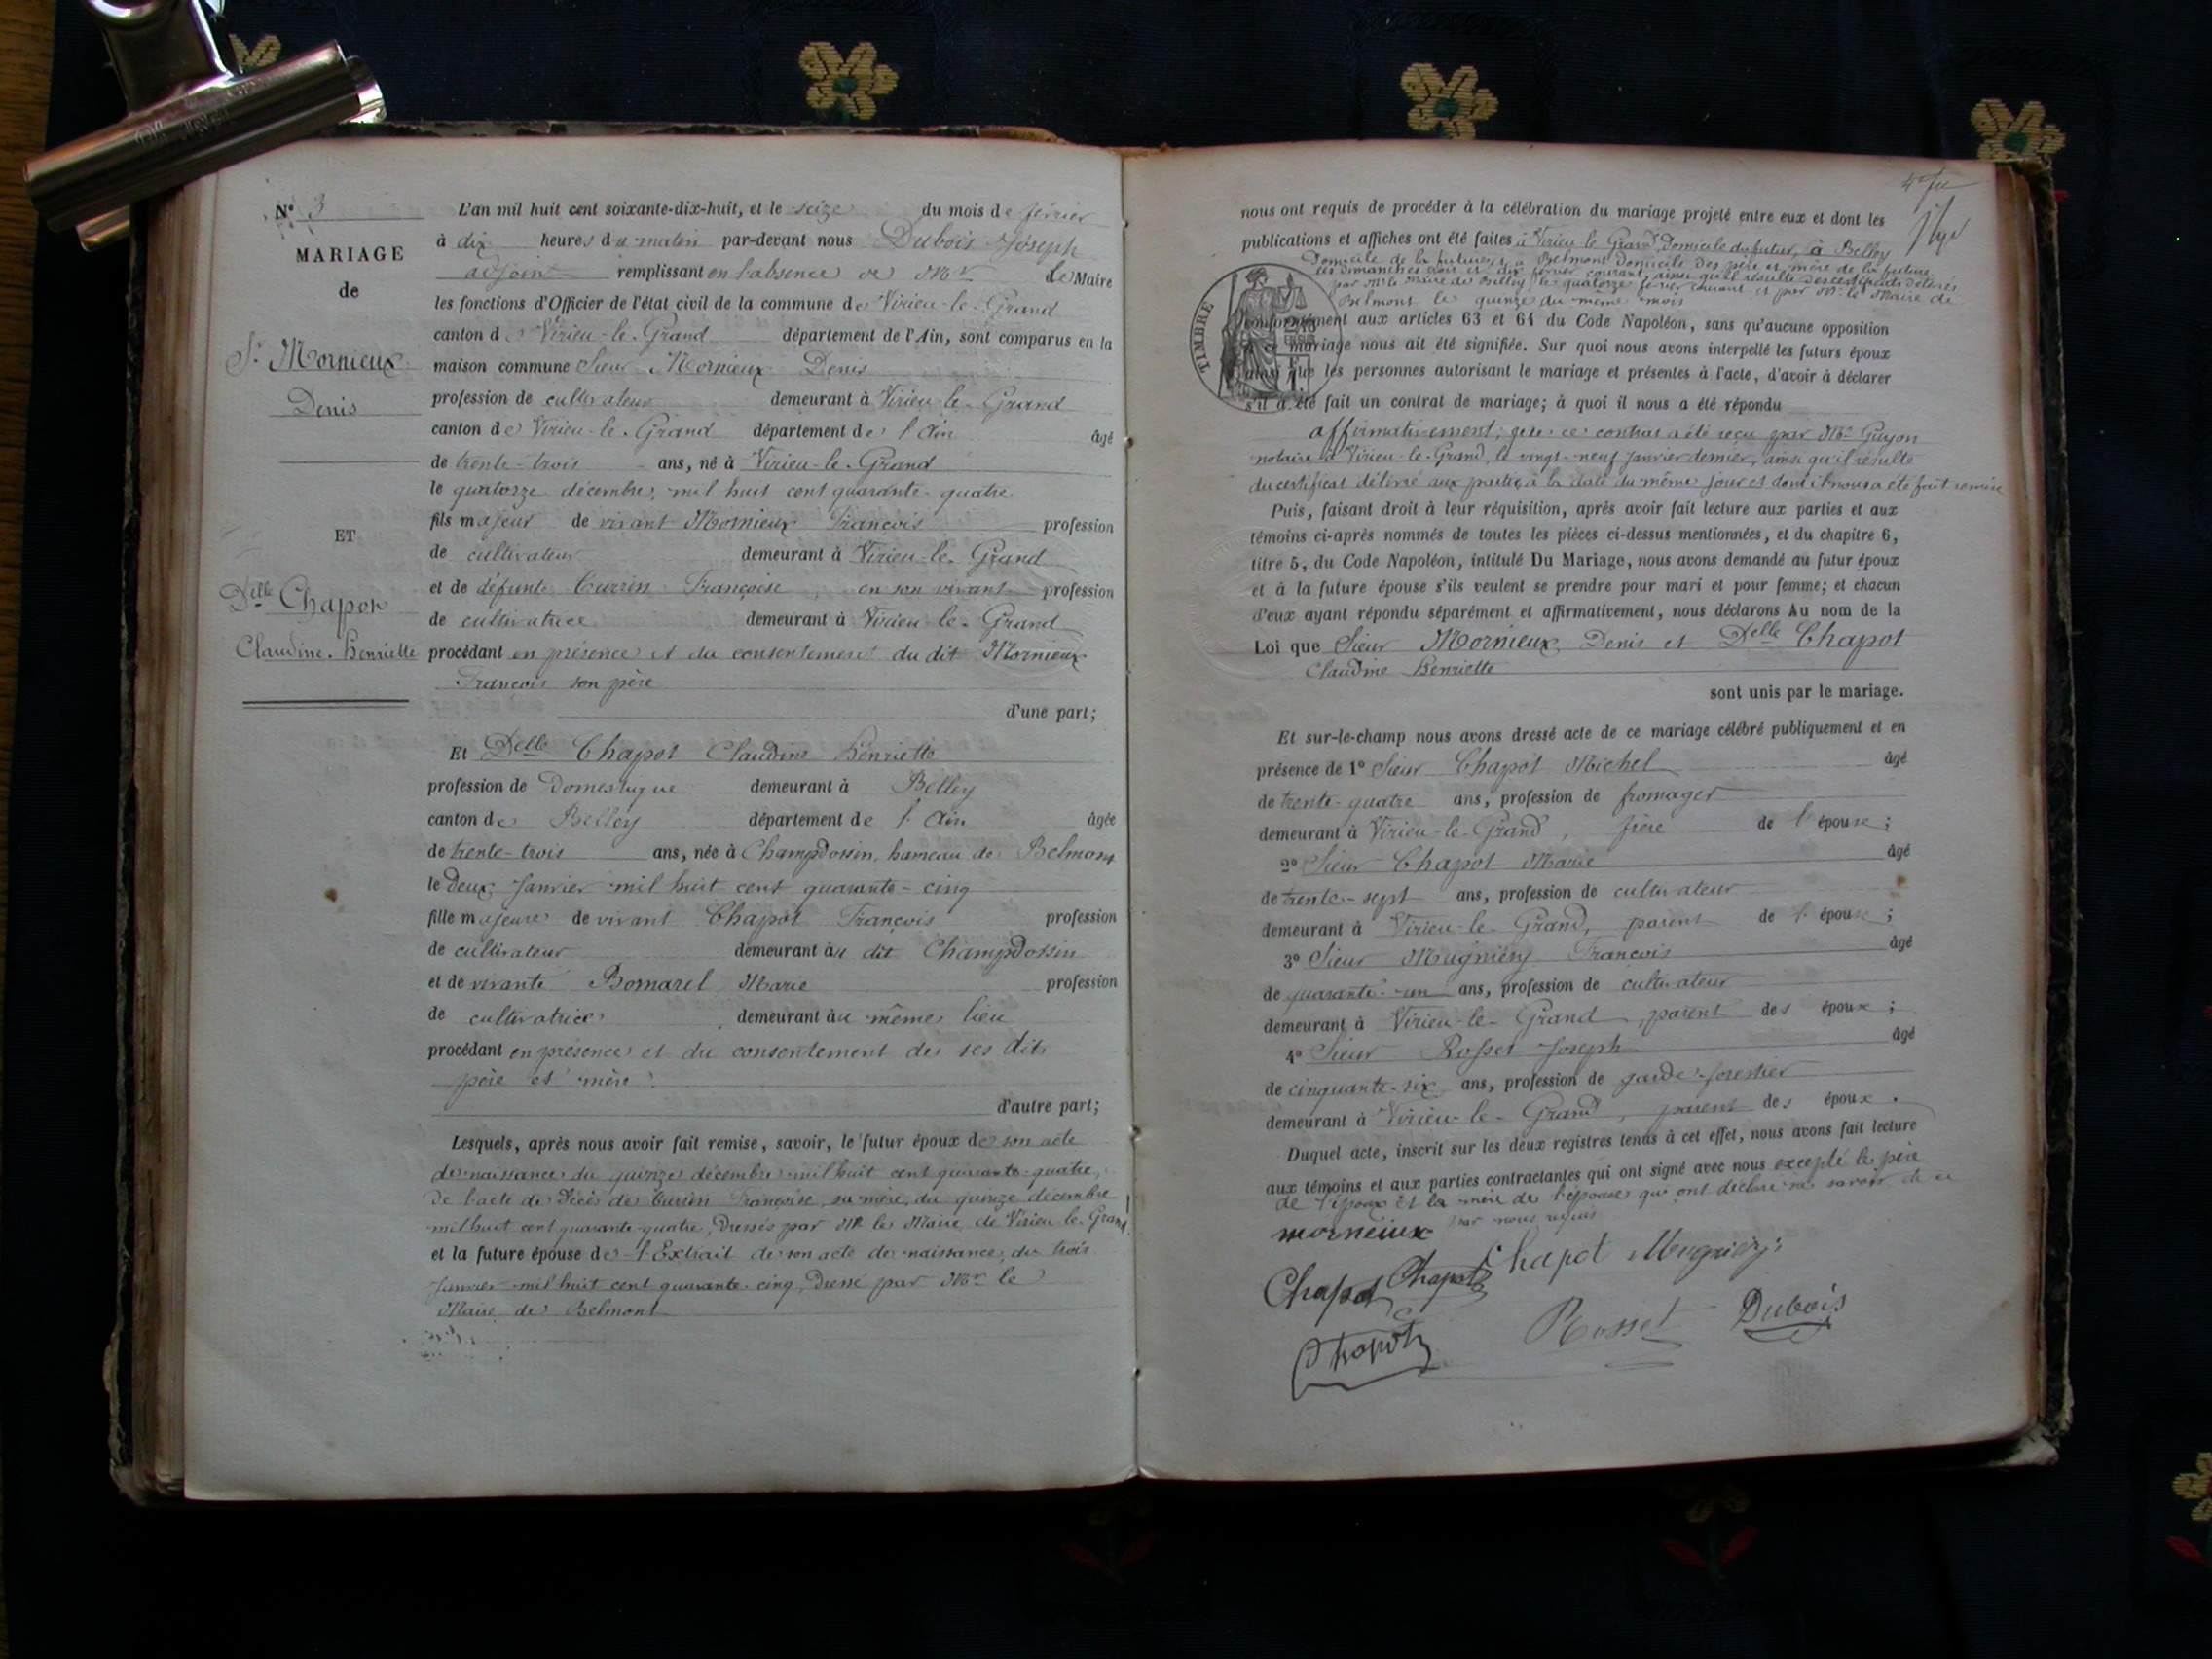 N° 3
MARIAGE
de
Sr Mornieux
Denis
ET
Delle Chapot
Claudine-henriette
L'an mil huit cent soixante-dix-huit, et le seize du mois de février
à dix heures du matin par-devant nous Dubois Joseph
adjoint remplissant en l'absence de Mr le Maire
les fonctions d'Officier de l'état civil de la commune de Virieu-le-Grand
canton de Virieu-le-Grand département de l'Ain, sont comparus en la
maison commune Sieur Mornieux Denis
profession de cultivateur demeurant à Virieu-le-Grand
canton de Virieu-le-Grand département de l'Ain âgé
de trente-trois ans, né à Virieu-le-Grand
le quatorze décembre, mil huit cent quarante-quatre
fils majeur de vivant Mornieux François profession
de cultivateur demeurant à Virieu-le-Grand
et de défunte Currin Françoise, en son vivant profession
de cultivatrice demeurant à Virieu-le-Grand
procédant en présence et du consentement du dit Mornieux
François son père
d'une part;
Et Delle Chapot Claudine henriette
profession de Domestique demeurant à Belley
canton de Belley département de l'Ain âgée
de trente-trois ans, née à Champdossin, hameau de Belmont
le deux Janvier mil huit cent quarante-cinq
fille majeure de vivant Chapot François profession
de cultivateur demeurant au dit Champdossin
et de vivante Bornarel Marie profession
de cultivatrice demeurant au même lieu
procédant en présence et du consentement de ses dits
père et mère.
d'autre part;
Lesquels, après nous avoir fait remise, savoir, le futur époux de son acte
de naissance du quinze décembre mil huit cent quarante-quatre,
de l'acte de décès de Currin Françoise, sa mère, du quinze décembre
mil huit cent quarante-quatre, Dressés par Mr le Maire de Virieu-le-Grand
et la future épouse de l'Extrait de son acte de naissance, du trois
Janvier mil huit cent quarante-cinq, Dressé par Mr le
Maire de Belmont
nous ont requis de procéder à la célébration du mariage projeté entre eux et dont les
publications et affiches ont été faites à Virieu le Grand, Domicile du futur, à Belley
Domicile de la future, et à Belmont Domicile des père et mère de la future,
les Dimanches trois et dix février courant, ainsi qu'il résulte des certificats délivrés
par Mr le Maire de Belley le quatorze février courant et par Mr le Maire de
Belmont le quinze du même mois
TIMBRE
conformément aux articles 63 et 64 du Code Napoléon, sans qu'aucune opposition
à ce mariage nous ait été signifiée. Sur quoi nous avons interpellé les futurs époux
ainsi que les personnes autorisant le mariage et présentes à l'acte, d'avoir à déclarer
s'il a été fait un contrat de mariage; à quoi il nous a été répondu
affirmativement; que ce contrat a été reçu par Me Guyon
notaire à Virieu-le-Grand, le vingt-neuf Janvier dernier, ainsi qu'il résulte
du certificat délivré aux parties à la date du même jour et dont il nous a été fait remise
Puis, faisant droit à leur réquisition, après avoir fait lecture aux parties et aux
témoins ci-après nommés de toutes les pièces ci-dessus mentionnées, et du chapitre 6,
titre 5, du Code Napoléon, intitulé Du Mariage, nous avons demandé au futur époux
et à la future épouse s'ils veulent se prendre pour mari et pour femme; et chacun
d'eux ayant répondu séparément et affirmativement, nous déclarons Au nom de la
Loi que Sieur Mornieux Denis et Delle Chapot
Claudine henriette
sont unis par le mariage.
Et sur-le-champ nous avons dressé acte de ce mariage célébré publiquement et en
présence de 1° Sieur Chapot Michel âgé
de trente-quatre ans, profession de fromager
demeurant à Virieu-le-Grand, frère de l'épouse;
2° Sieur Chapot Marie âgé
de trente-sept ans, profession de cultivateur
demeurant à Virieu-le-Grand, parent de l'épouse;
3° Sieur Mugniery François âgé
de quarante-un ans, profession de cultivateur
demeurant à Virieu-le-Grand, parent des époux;
4° Sieur Rosset Joseph âgé
de cinquante-six ans, profession de garde-forestier
demeurant à Virieu-le-Grand, parent des époux.
Duquel acte, inscrit sur les deux registres tenus à cet effet, nous avons fait lecture
aux témoins et aux parties contractantes qui ont signé avec nous excepté le père
de l'époux et la mère de l'épouse qui ont déclaré ne savoir de ce
par nous requis
morneiux
Chapot Chapot Chapot Mugniery
Chapot Rosset Dubois